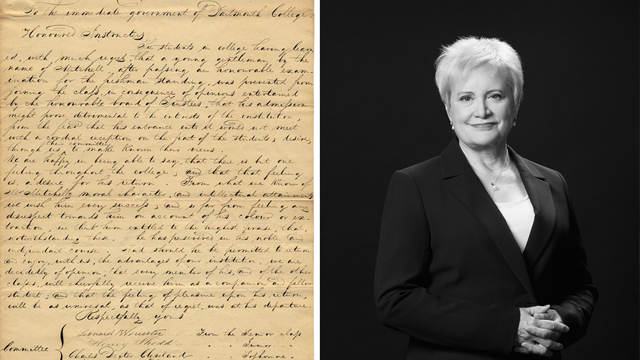 To the immediate government of Dartmouth College;
Honoured Instructors
The students in college having learn-
ed, with much regret, that a young gentleman, by the
name of Mitchell, after passing an honourable exam-
ination for the freshman standing, was prevented from
joining the class, in consequence of opinions entertained
by the honourable board of Trustees, that his admission
might prove detrimental to the interests of the institution,
from the fear that his entrance into it would not meet
with a cordial reception on the part of the students; desire,
through us, their committee, to make known their views.
We are happy in being able to say, that there is but one
feeling throughout the college; and that that feeling
is, a desire for his return. From what we know of
Mr Mitchell's moral character, and intellectual attainments,
we wish him every success; and so far from feeling any
disrespect towards him on account of his colour or ex-
traction, we think him entitled to the highest praise, that,
notwithstanding this, he has persevered in his noble and
independent course. And should he be permitted to return
and enjoy, with us, the advantages of our institution, we are
decidedly of opinion, that every member of his, and of the other
classes, will cheerfully receive him as a companion and fellow
student; and that the feeling of pleasure upon his return,
will be as universal as that of regret, was at his departure.
Respectfully yours
Leonard Worcester From the Senior Class
Henry Wood " " Junior "
Committee Charles Dexter Cleveland " " Sophomore "